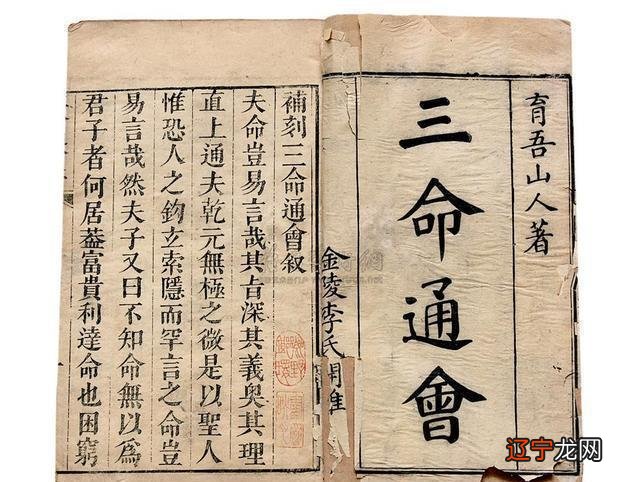 育吾山人著
三命通會
金陵李氏
補刻三命通會叙
夫命豈易言哉其旨深其義奧其理
直上通夫乾元無極之微是以聖人
惟恐人之鈎玄索隱而罕言之命豈
易言哉然夫子又曰不知命無以爲
君子者何居葢富貴利達命也困窮
辽宁龙网